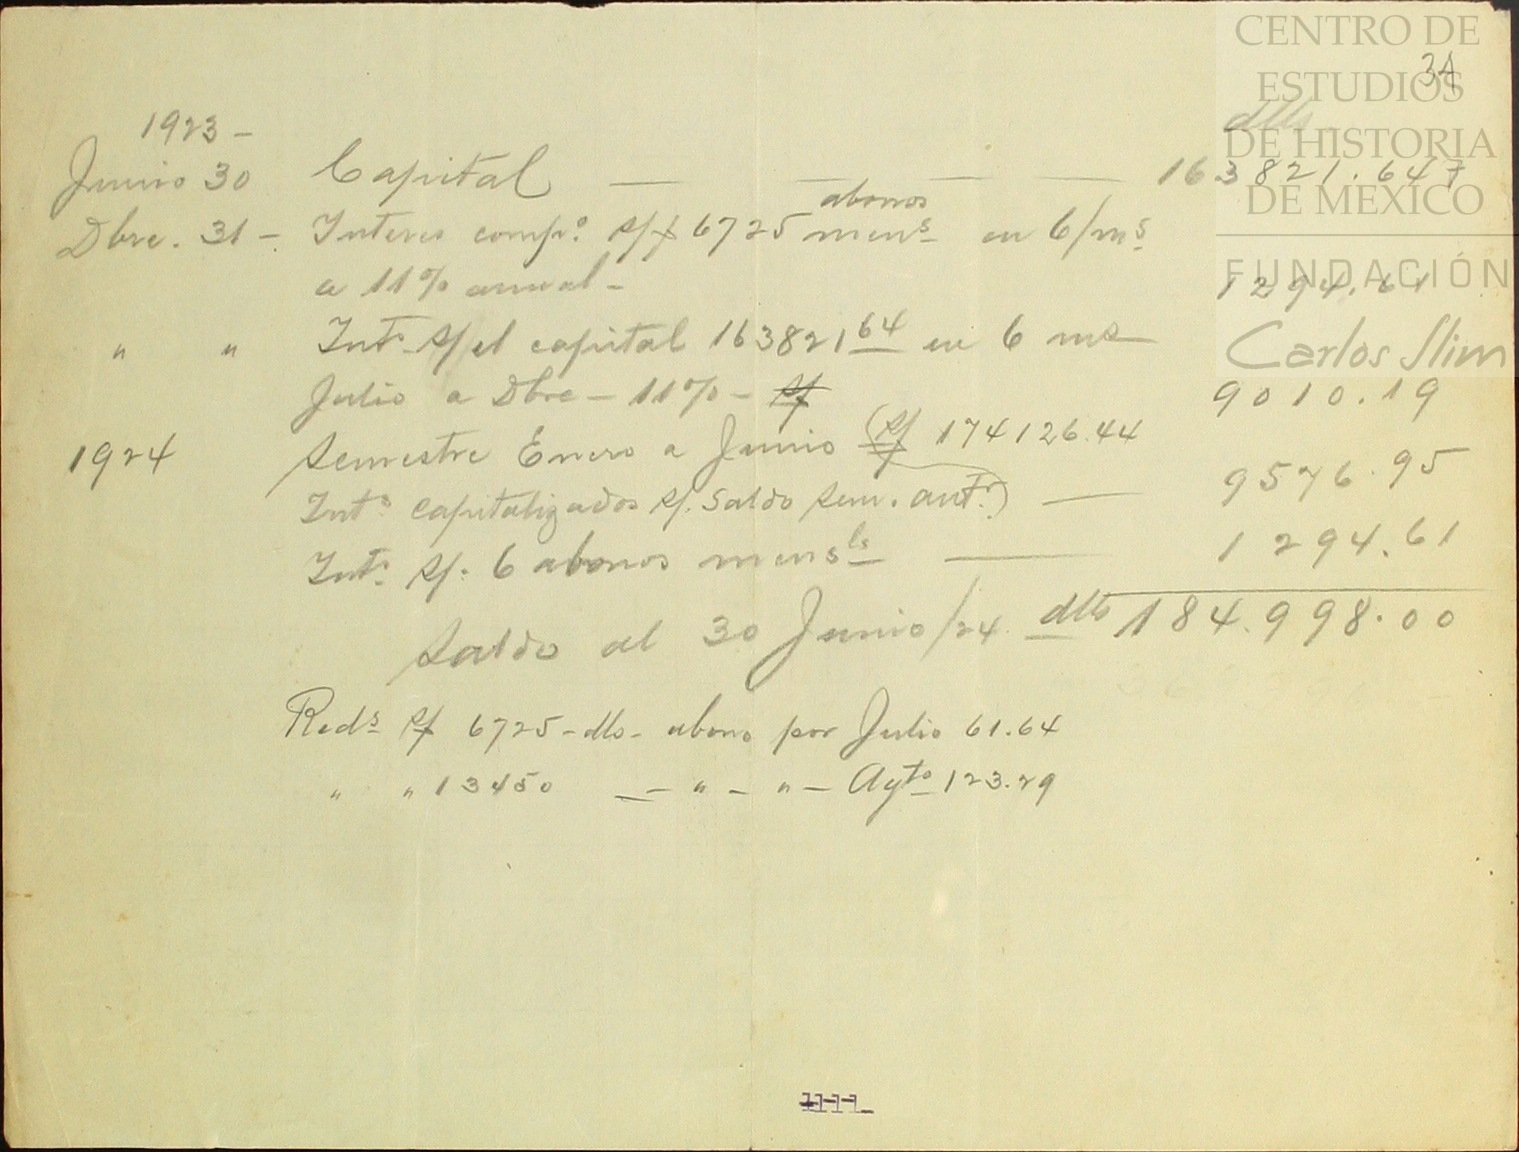 CENTRO DE
ESTUDIOS
DE HISTORIA
DE MÉXICO
FUNDACIÓN
Carlos Slim
34
dlls
1923 -
Junio 30 Capital — — — 163821.647
Dbre. 31 - Interes comp.º s/ 6725 abonos mens en 6/ms
a 11% anual -
1294.61
" " Ints s/ el capital 163821 64 en 6 ms
Julio a Dbre - 11% -
9010.19
1924 Semestre Enero a Junio (s/ 174126.44
Ints capitalizados s/. Saldo sem. ant.) — 9576.95
Ints s/. 6 abonos mensls — 1294.61
Saldo al 30 Junio/24. dlls 184.998.00
Reds s/ 6725 - dls - abono por Julio 61.64
" " 13450 — - " - " - Agto 123.29